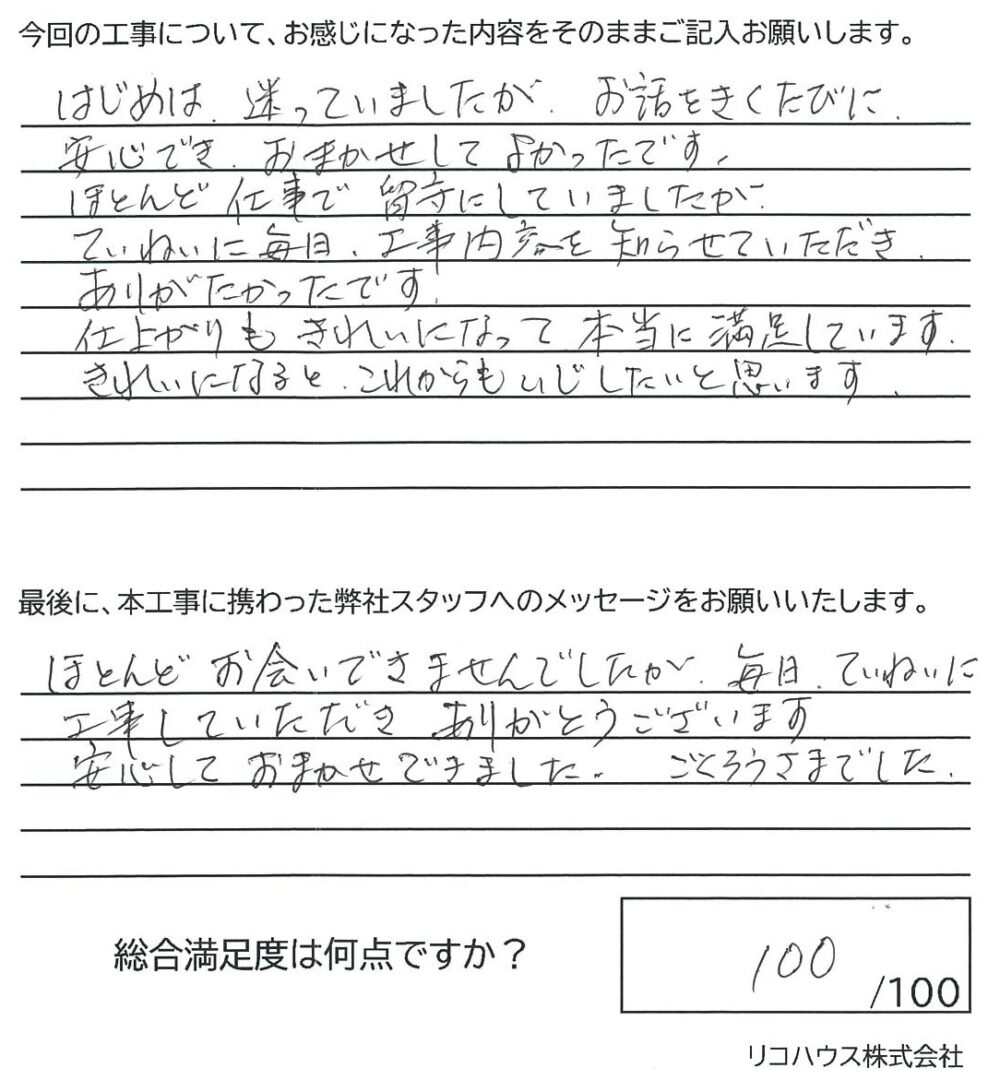 今回の工事について、お感じになった内容をそのままご記入お願いします。
はじめは、迷っていましたが、お話をきくたびに、
安心でき、おまかせしてよかったです。
ほとんど仕事で留守にしていましたが、
ていねいに毎日、工事内容を知らせていただき、
ありがたかったです。
仕上がりもきれいになって本当に満足しています。
きれいになると、これからもいじしたいと思います。
最後に、本工事に携わった弊社スタッフへのメッセージをお願いいたします。
ほとんどお会いできませんでしたが、毎日、ていねいに
工事していただき、ありがとうございます
安心しておまかせできました。ごくろうさまでした。
総合満足度は何点ですか？
100
/100
リコハウス株式会社